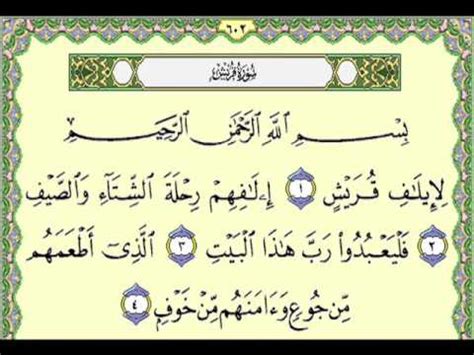 ٦٠٢
سُورَةُ قُرَيْشٍ
بِسْمِ ٱللَّهِ ٱلرَّحْمَٰنِ ٱلرَّحِيمِ
لِإِيلَٰفِ قُرَيْشٍ ١ إِۦلَٰفِهِمْ رِحْلَةَ ٱلشِّتَآءِ وَٱلصَّيْفِ
٢ فَلْيَعْبُدُوا۟ رَبَّ هَٰذَا ٱلْبَيْتِ ٣ ٱلَّذِىٓ أَطْعَمَهُم
مِّن جُوعٍ وَءَامَنَهُم مِّنْ خَوْفٍۭ ٤